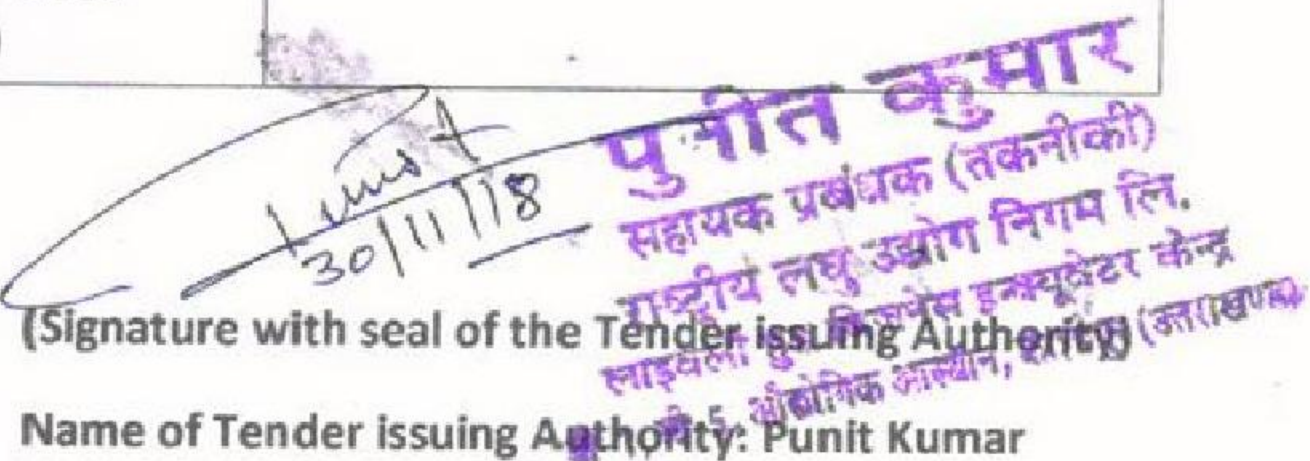 30/11/18
पुनीत कुमार
सहायक प्रबंधक (तकनीकी)
राष्ट्रीय लघु उद्योग निगम लि.
इन्क्यूबेटर केन्द्र
औद्योगिक आस्थान, (उत्तराखण्ड)
(Signature with seal of the Tender issuing Authority)
Name of Tender issuing Authority: Punit Kumar